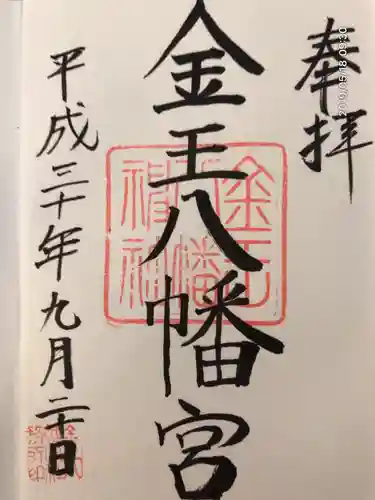 奉拝
金王八幡宮
平成三十年九月二十日
2019/05/18 09:30